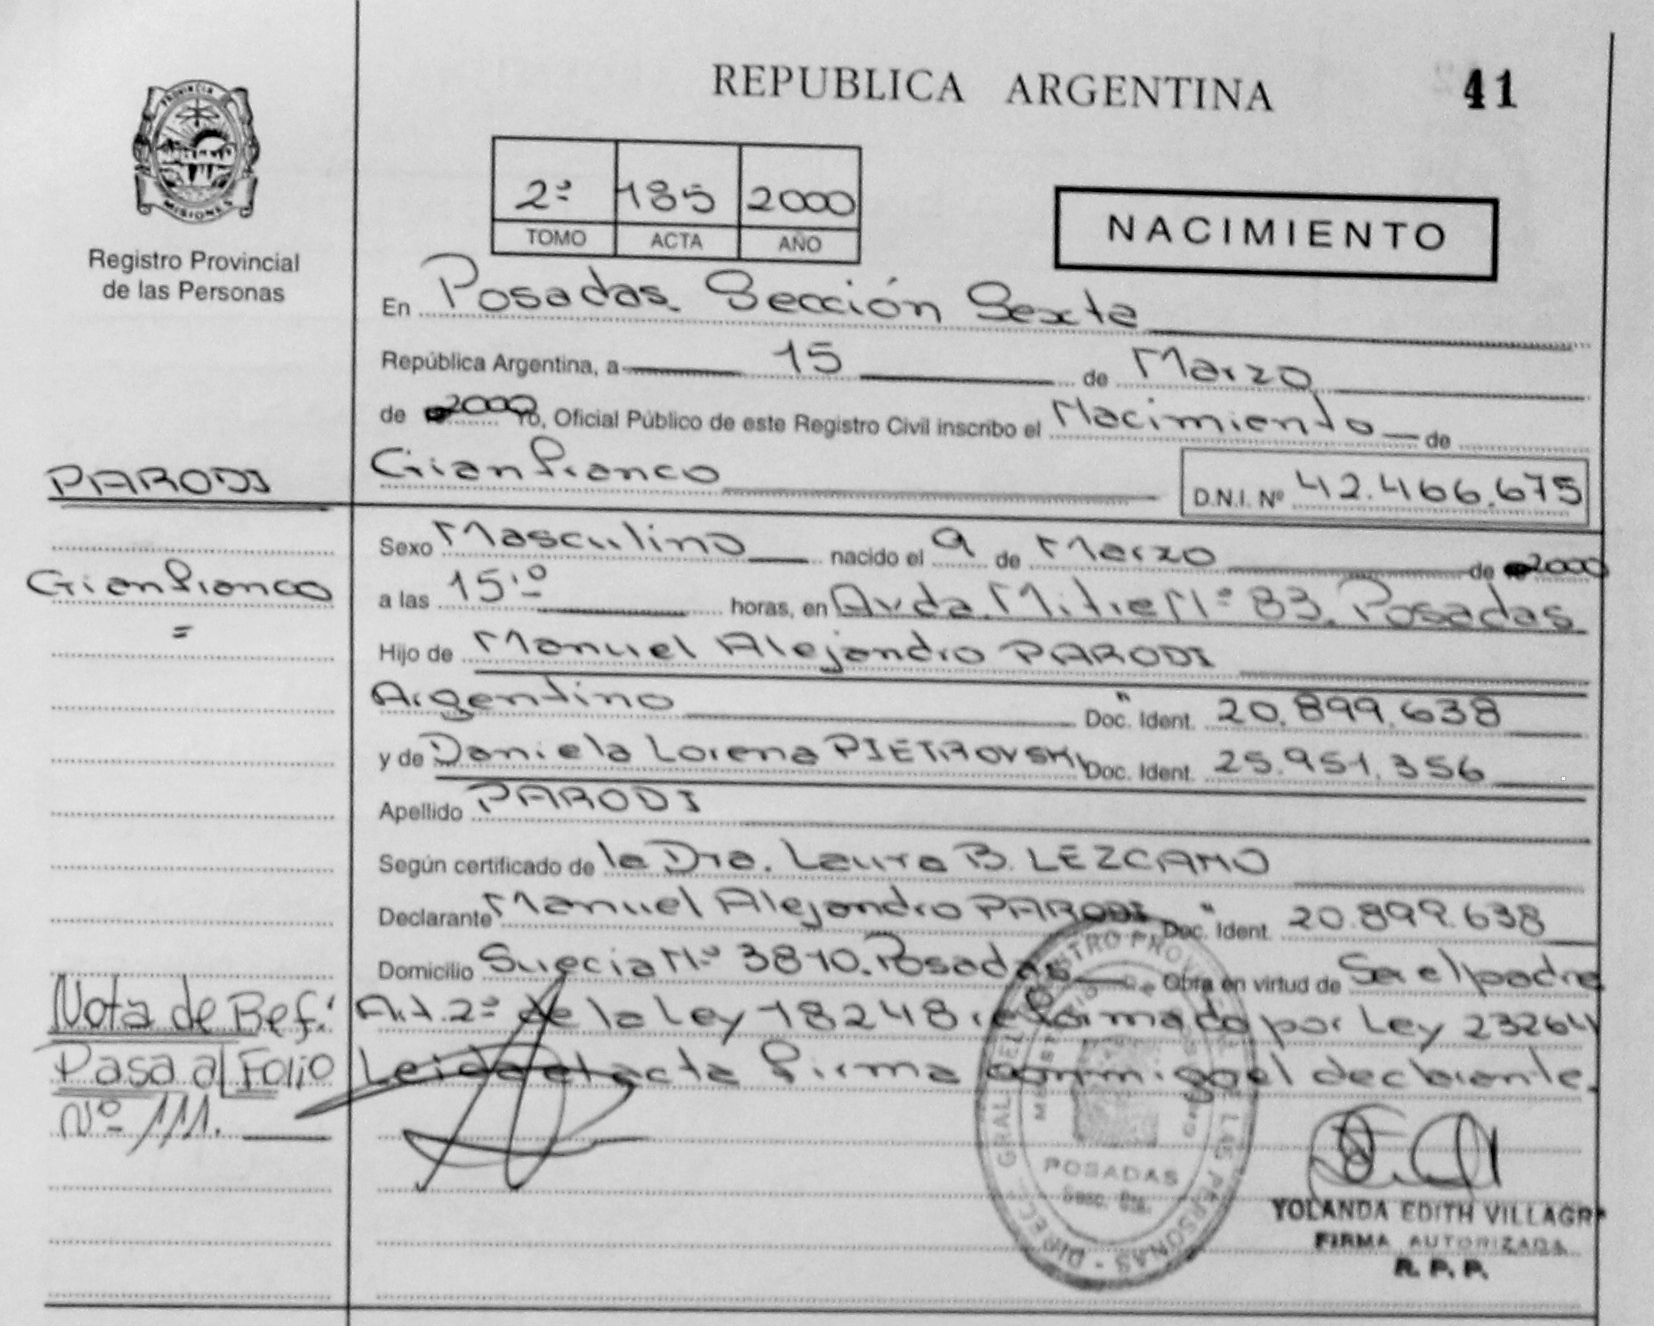 REPUBLICA ARGENTINA
41
PROVINCIA
MISIONES
Registro Provincial
de las Personas
2º 185 2000
TOMO ACTA AÑO
NACIMIENTO
En Posadas Sección Sexta
República Argentina, a 15 de Marzo
de 2000 Yo, Oficial Público de este Registro Civil inscribo el Nacimiento de
PARODI
Gianfranco D.N.I. Nº 42.466.675
Sexo Masculino nacido el 9 de Marzo de 2000
Gianfranco
=
a las 15:º horas, en Avda. Mitre Nº 83. Posadas
Hijo de Manuel Alejandro PARODI
Argentino Doc. Ident. 20.899.638
y de Daniela Lorena PIETROVSKI Doc. Ident. 25.951.356
Apellido PARODI
Según certificado de la Dra. Laura B. LEZCANO
Declarante Manuel Alejandro PARODI Doc. Ident. 20.899.638
Domicilio Suecia Nº 3810. Posadas Obra en virtud de Ser el padre
Nota de Ref:
Art. 2º de la Ley 18248 reformado por Ley 23264
Pasa al Folio
Leida el acta firma conmigo el declarante.
Nº 111.
POSADAS
YOLANDA EDITH VILLAGR
FIRMA AUTORIZADA
R. P. P.